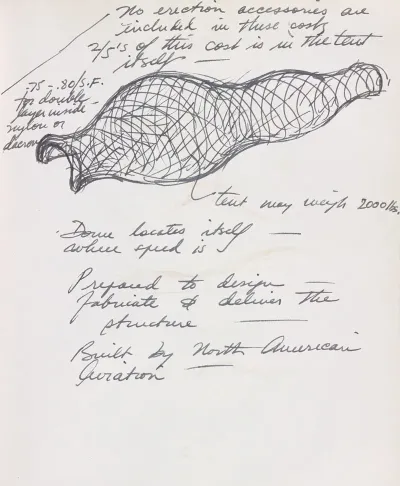 No erection accessories are
included in these costs
2/5's of this cost is in the tent
itself —
.75 - .80/S.F.
for double
layer inside
nylon or
dacron
tent may weigh 2000 lbs.
Dome locates itself —
where speed is
Prepared to design —
fabricate & deliver the
structure —
Built by North American
Aviation —